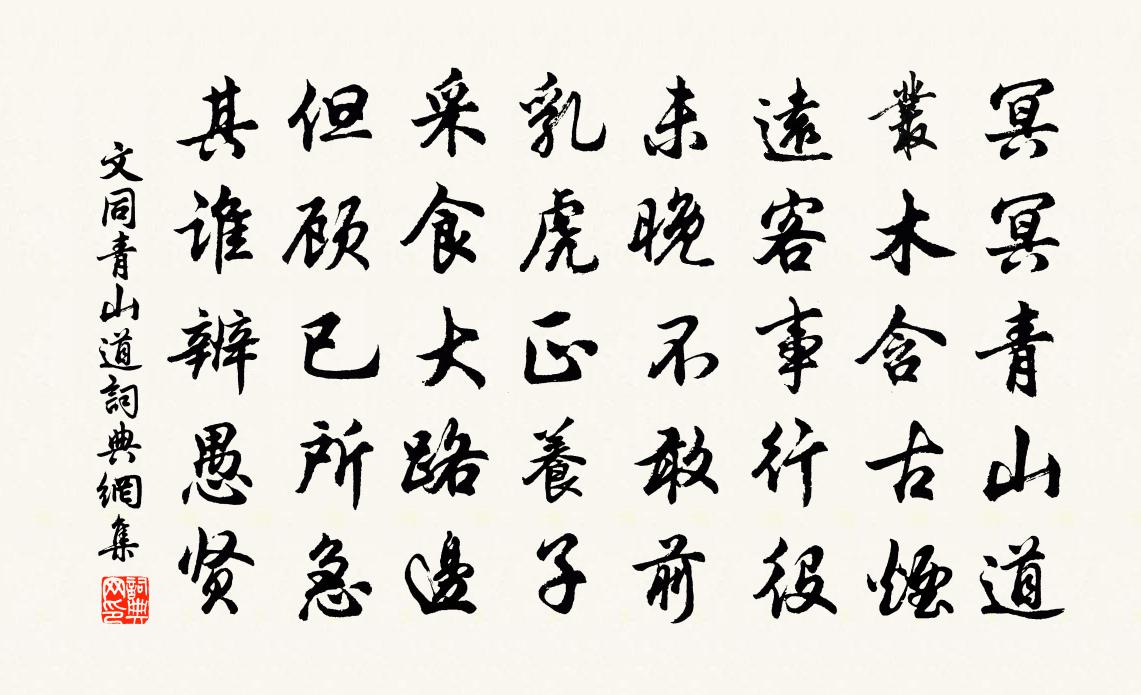 冥冥青山道
叢木含古煙
遠客事行役
未晚不敢前
乳虎正養子
采食大路邊
但顾已所急
其谁辨愚贤
文同青山道詞典網集
詞典網印